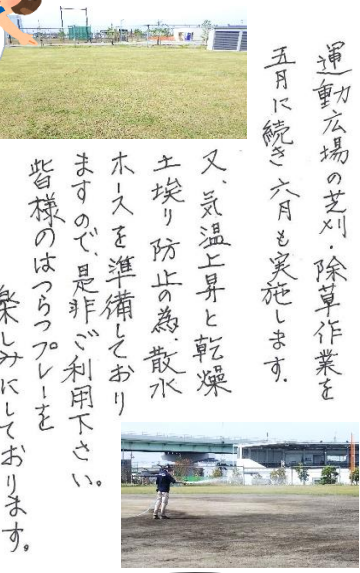 運動広場の芝刈・除草作業を
五月に続き六月も実施します.
又、気温上昇と乾燥
土埃り防止の為、散水
ホースを準備しており
ますので、是非ご利用下さい。
皆様のはつらつプレーを
楽しみにしております。